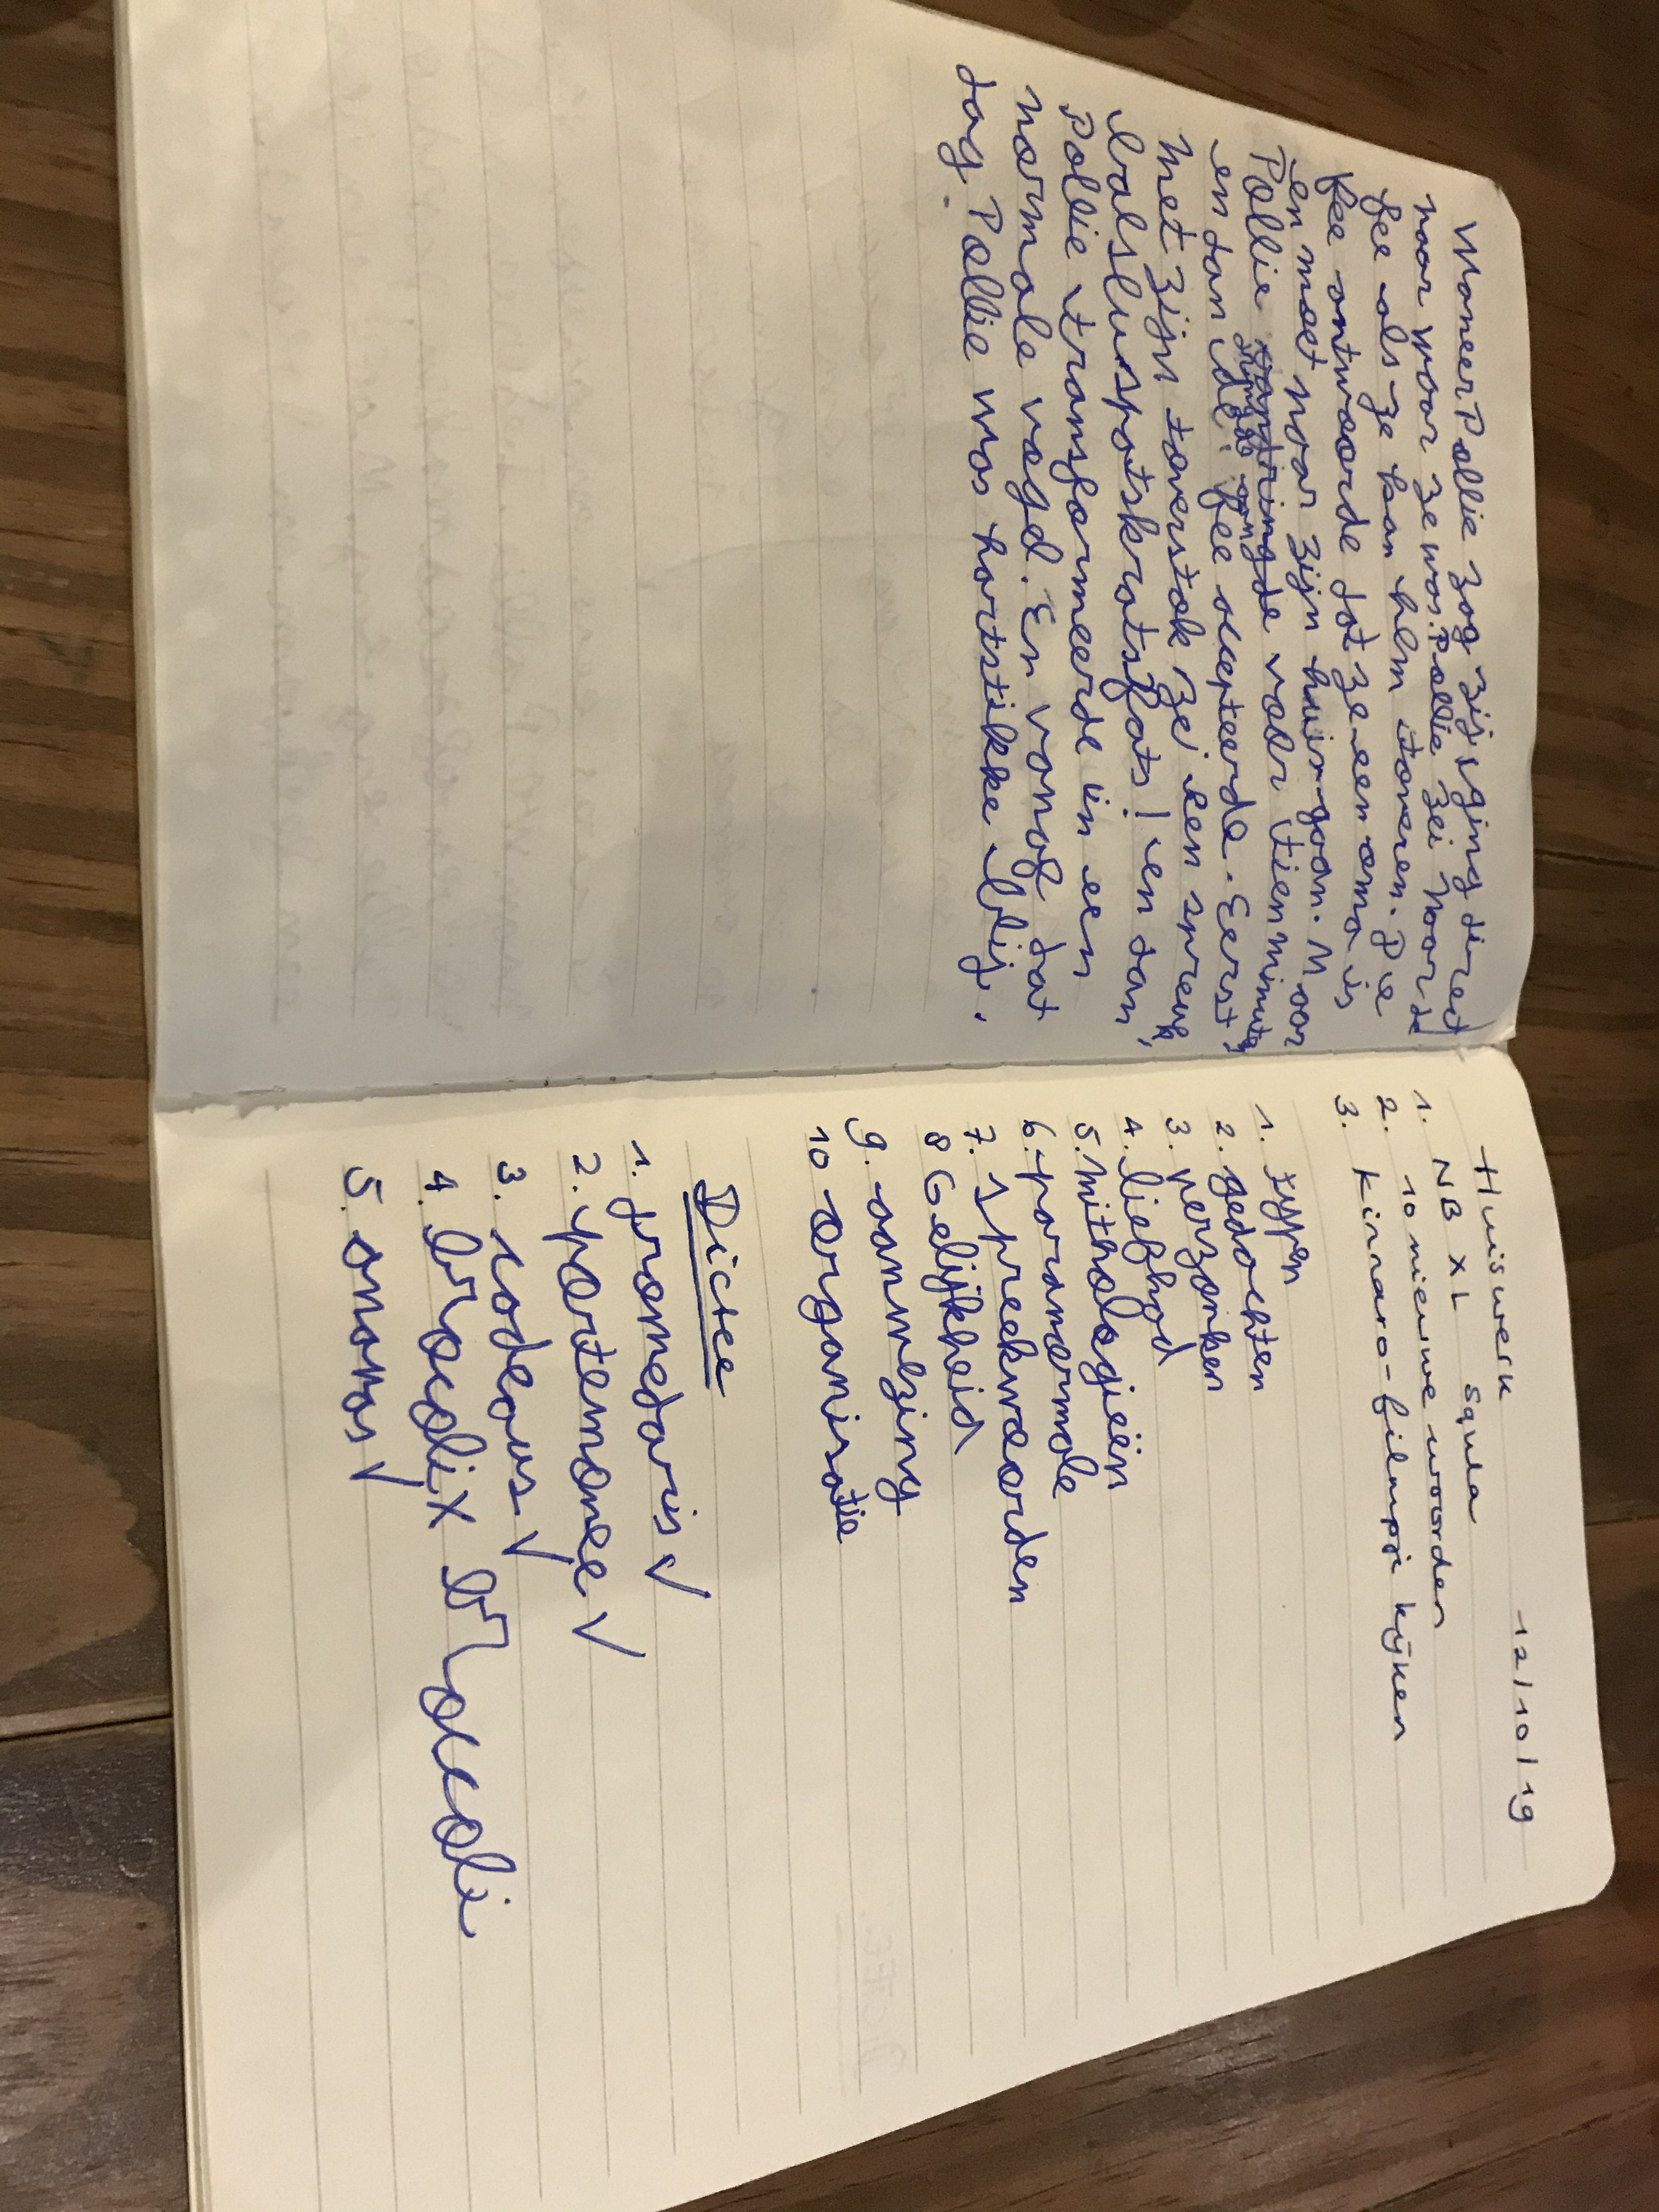 Waneer Pollie zag zij ging direct
naar waar ze was. Pollie zei naar de
fee als ze kan hem toveren. De
fee antwoorde dat ze een oma is
en moet naar zijn huis gaan. Maar
Pollie dringde voor tien minuten
en dan de fee accepteerde. Eerst,
met zijn toverstok zei een spreuk
en dan,
Pollie transformeerde in een
normale vogel. En vanaf dat
dag Pollie was hartstikke blij.
12/10/19
Huiswerk
1. NB XL squla
2. 10 nieuwe woorden
3. Kinnaro-filmpje kijken
1. typen
2. gedachten
3. perzonken
4. liefhgd
5. mithologieën
6. paranormale
7. spreekwoorden
8 Gelijkheid
9. aanwezing
10 organisatie
Dictee
1. dromedaris √
2. portemonee √
3. cadeaus √
4. brocoli X broccoli
5. ananas √